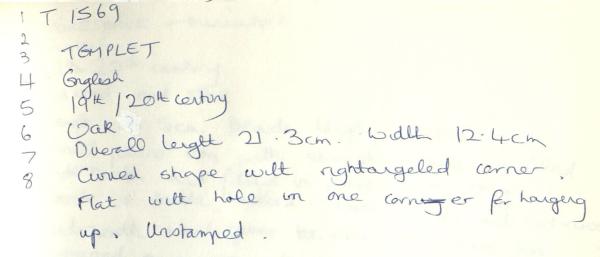 1 T 1569
2
3 TEMPLET
4 English
5 19th / 20th century
6 Oak
7 Overall length 21.3cm. Width 12.4cm
8 Curved shape with rightangeled corner.
Flat with hole in one corner for hanging
up. Unstamped.